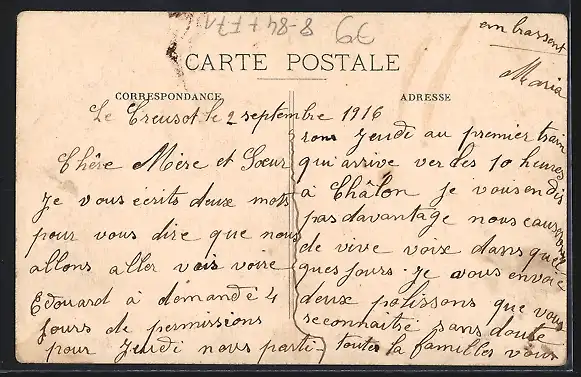 CARTE POSTALE
CORRESPONDANCE
ADRESSE
Le Creusot le 2 septembre 1916
Chère Mère et Sœur
Je vous écrits deux mots
pour vous dire que nous
allons aller vois voire
Edouard à demandé 4
jours de permissions
pour Jeudi nous parti-
rons Jeudi au premier train
qui arrive ver les 10 heures
à Châlon je vous en dis
pas davantage nous causerons
de vive voix dans quel
ques jours. Je vous envoie
deux polissons que vous
reconnaitré sans doute
Toutes la familles vous
embrassent
Maria